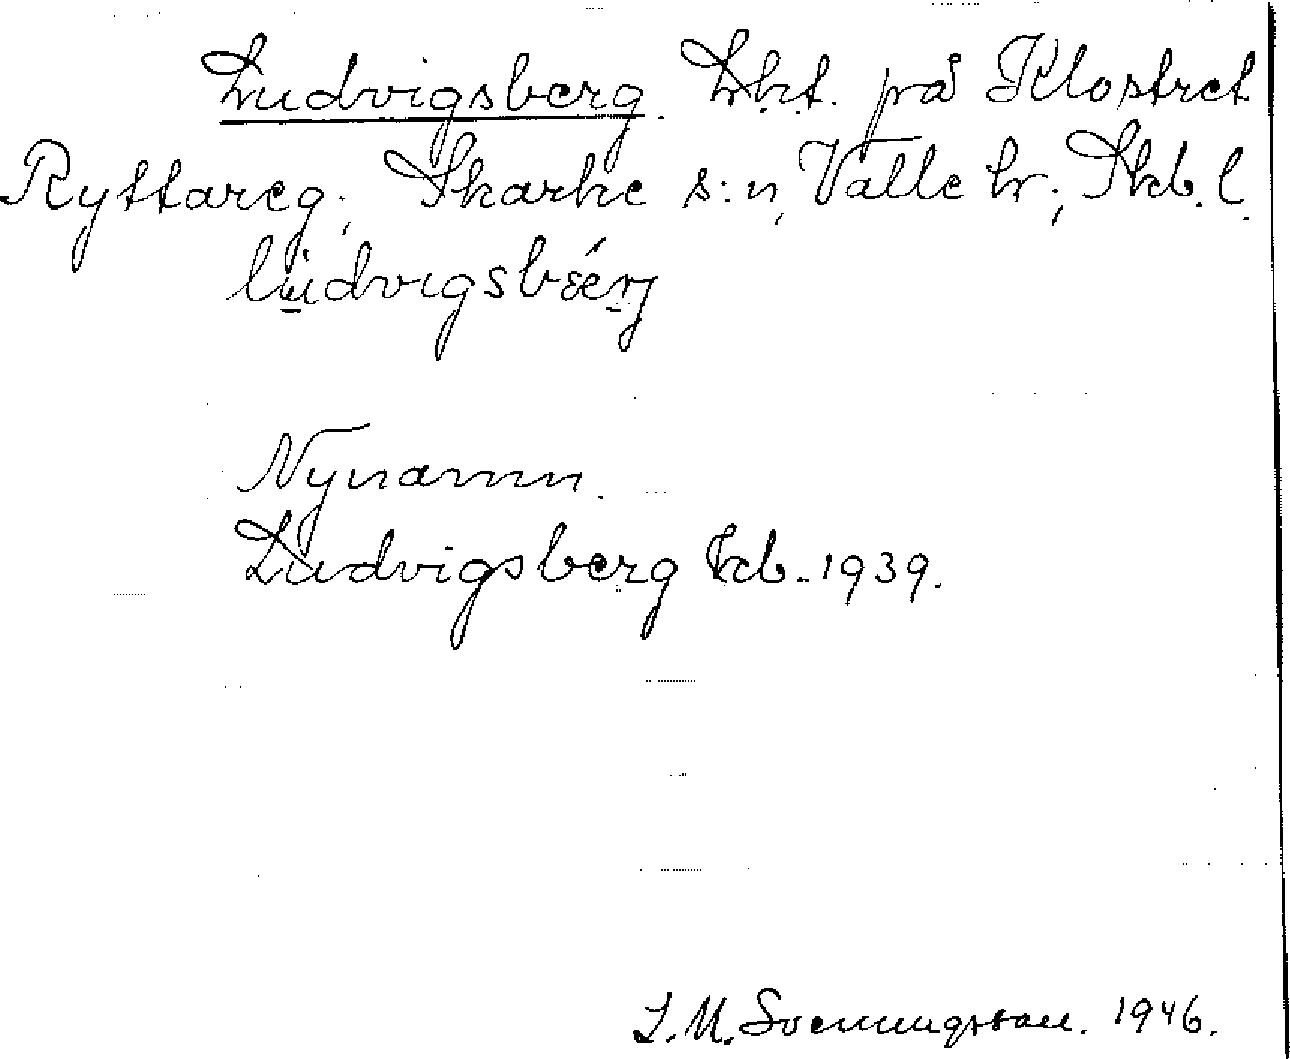 Ludvigsberg. Lht. på Klostret
Ryttareg., Skarke s:n, Valle hr; Skb. l.
lu̱dvigsbǽrj
Nynamn.
Ludvigsberg Kb. 1939.
J. M. Svenningsson. 1946.